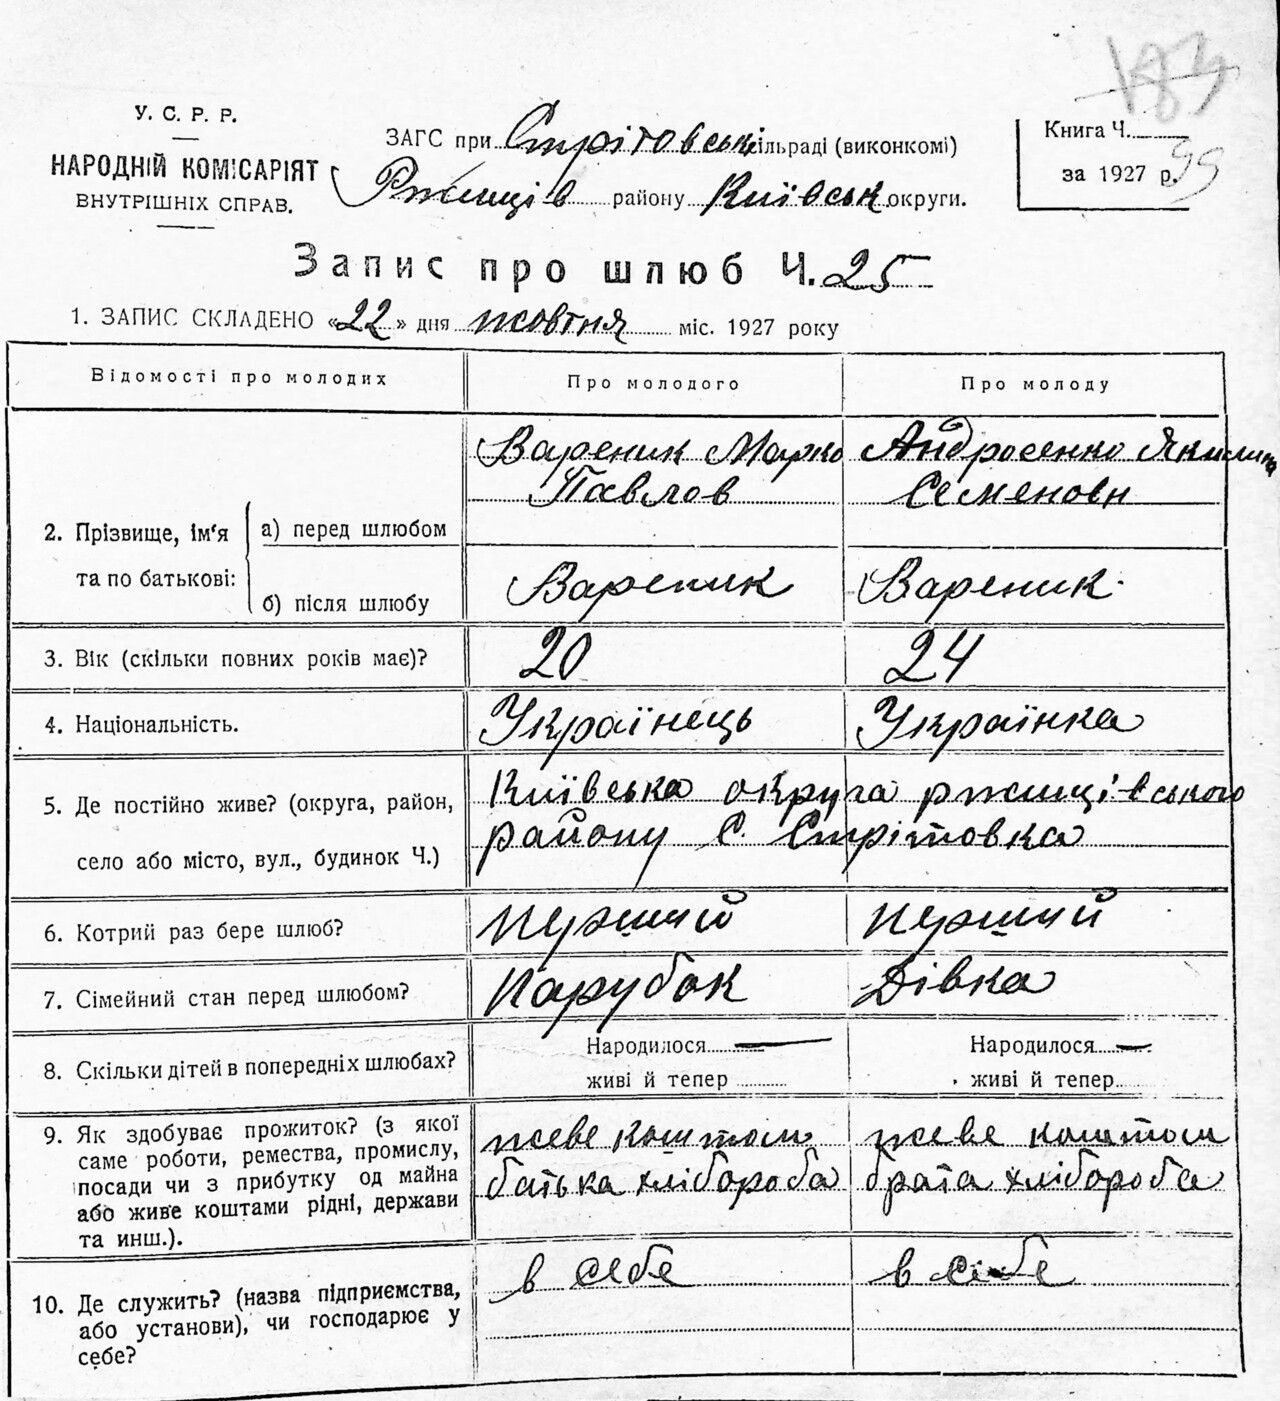 183
У. С. Р. Р.
НАРОДНІЙ КОМІСАРІЯТ
ВНУТРІШНІХ СПРАВ.
ЗАГС при Стрітовські сільраді (виконкомі)
Ржищів району Київськ округи.
Книга Ч.
за 1927 р. 99
Запис про шлюб Ч. 25
1. ЗАПИС СКЛАДЕНО «22» дня жовтня міс. 1927 року
Відомості про молодих Про молодого Про молоду
2. Прізвище, ім‘я та по батькові:
а) перед шлюбом
Вареник Марко
Павлов
Андросенко Якилина
Семеновн
б) після шлюбу
Вареник
Вареник
3. Вік (скільки повних років має)? 20 24
4. Національність. Українець Українка
5. Де постійно живе? (округа, район,
село або місто, вул., будинок Ч.)
Київська округа ржищівського
району С. Стрітовка
6. Котрий раз бере шлюб? Перший Перший
7. Сімейний стан перед шлюбом? Парубок Дівка
8. Скільки дітей в попередніх шлюбах?
Народилося — 
живі й тепер
Народилося —
живі й тепер
9. Як здобуває прожиток? (з якої
саме роботи, ремества, промислу,
посади чи з прибутку од майна
або живе коштами рідні, держави
та инш.).
жеве коштом
батька хлібороба
жеве коштом
брата хлібороба
10. Де служить? (назва підприємства,
або установи), чи господарює у
себе?
в себе
в себе